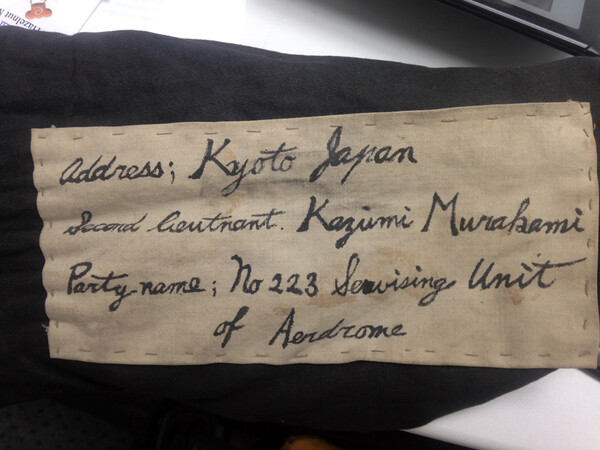 Hazelnut
Address; Kyoto Japan
Second lieutnant. Kazumi Murakami
Party name; No 223 Servising Unit
of Aerdrome